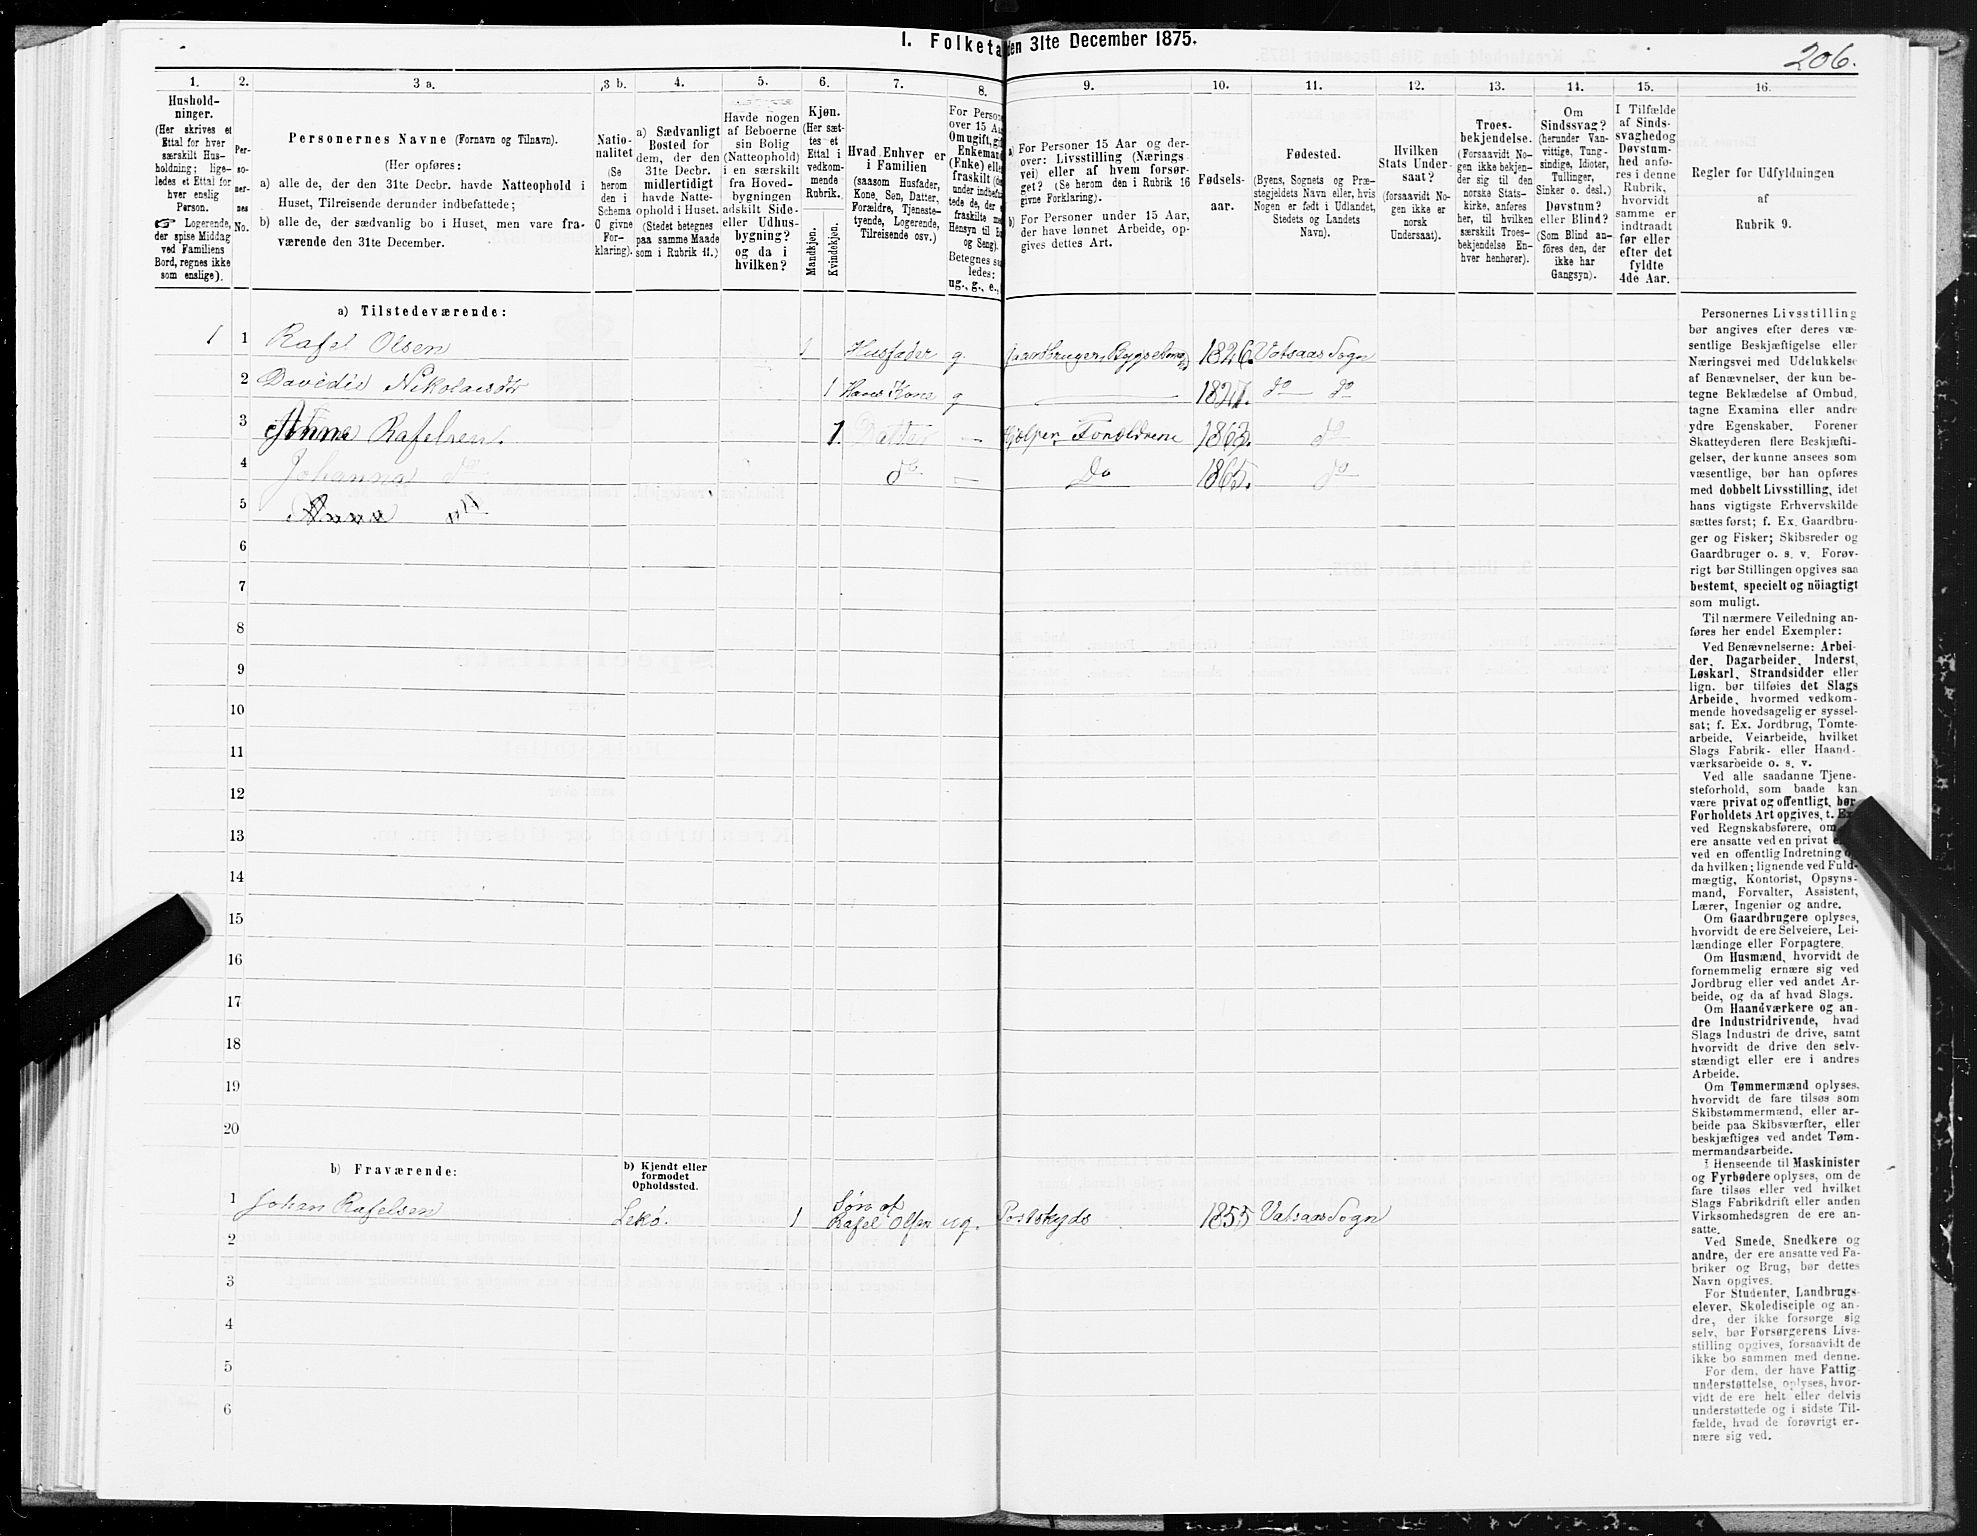 I. Folketa den 31te December 1875.
206.
1.
Hushold-
ninger.
(Her skrives et
Ettal for hver
særskilt Hus-
holdning; lige-
ledes et Ettal for
hver enslig
Person.
☞ Logerende,
der spise Middag
ved Familiens
Bord, regnes ikke
som enslige).
2.
Per-
so-
ner-
nes
No.
3 a.
Personernes Navne (Fornavn og Tilnavn).
(Her opføres:
a) alle de, der den 31te Decbr. havde Natteophold i
Huset, Tilreisende derunder indbefattede;
b) alle de, der sædvanlig bo i Huset, men vare fra-
værende den 31te December.
3 b.
Natio-
nalitet
(Se
herom
den i
Schema
O givne
For-
klaring).
4.
a) Sædvanligt
Bosted for
dem, der den
31te Decbr.
midlertidigt
havde Natte-
ophold i Huset.
(Stedet betegnes
paa samme Maade
som i Rubrik 11.)
5.
Havde nogen
af Beboerne
sin Bolig
(Natteophold)
i en særskilt
fra Hoved-
bygningen
adskilt Side-
eller Udhus-
bygning?
og da i
hvilken?
6.
Kjøn.
(Her sæt-
tes et
Ettal i
vedkom-
mende
Rubrik.
Mandkjøn.
Kvindekjøn.
7.
Hvad Enhver er
i Familien
(saasom Husfader,
Kone, Søn, Datter,
Forældre, Tjeneste-
tyende, Logerende,
Tilreisende osv.)
8.
For Person
over 15 Aa
Omugift, gif
Enkemand
(Enke) elle
fraskilt (de
under indbefat
tede de, der e
fraskilte med
Hensyn til Bo
og Seng).
Betegnes sa
ledes:
ug., g., e.,
9.
a) For Personer 15 Aar og der-
over: Livsstilling (Nærings
vei) eller af hvem forsør-
get? (Se herom den i Rubrik 16
givne Forklaring).
b) For Personer under 15 Aar,
der have lønnet Arbeide, op-
gives dettes Art.
10.
Fødsels-
aar.
11.
Fødested.
(Byens, Sognets og Præ-
stegjeldets Navn eller, hvis
Nogen er født i Udlandet,
Stedets og Landets
Navn).
12.
Hvilken
Stats Under-
saat?
(forsaavidt No-
gen ikke er
norsk
Undersaat).
13.
Troes-
bekjendelse.
(Forsaavidt No-
gen ikke bekjen-
der sig til den
norske Stats-
kirke, anføres
her, til hvilken
særskilt Troes-
bekjendelse En-
hver henhører).
14.
Om
Sindssvag?
(herunder Van-
vittige, Tung-
sindige, Idioter,
Tullinger,
Sinker o. desl.)
Døvstum?
eller Blind?
(Som Blind an-
føres den, der
ikke har
Gangsyn).
15.
I Tilfælde
af Sinds-
svaghedog
Døvstum-
hed anfø-
res i denne
Rubrik,
hvorvidt
samme er
indtraadt
før eller
efter det
fyldte
4de Aar.
16.
Regler for Udfyldningen
af
Rubrik 9.
a) Tilstedeværende:
1 1 Rafel Olsen 1 Husfader g. Gaardbruger, Bygselmd 1826. Vatsaas Sogn
2 Davidie Nikolaisdtr 1 Hans Kone g 1827. do do
3 Anna Rafelsen. 1. Datter — Hjelper Forældrene 1863. do
4 Johanna do do — Do 1865. do
5 Anna
6
7
8
9
10
11
12
13
14
15
16
17
18
19
20
b) Fraværende:
b) Kjendt eller
formodet
Opholdssted.
1 Johan Rafelsen Lekø. 1 Søn af
Rafel Olsen ug. Postskyds 1855 Vatsaas Sogn
2
3
4
5
6
Personernes Livsstilling
bør angives efter deres væ-
sentlige Beskjæftigelse eller
Næringsvei med Udelukkelse
af Benævnelser, der kun be-
tegne Beklædelse af Ombud,
tagne Examina eller andre
ydre Egenskaber. Forener
Skatteyderen flere Beskjæfti-
gelser, der kunne ansees som
væsentlige, bør han opføres
med dobbelt Livsstilling, idet
hans vigtigste Erhvervskilde
sættes først; f. Ex. Gaardbru-
ger og Fisker; Skibsreder og
Gaardbruger o. s. v. Forøv-
rigt bør Stillingen opgives saa
bestemt, specielt og nöiagtigt
som muligt.
Til nærmere Veiledning an-
føres her endel Exempler:
Ved Benævnelserne: Arbei-
der, Dagarbeider, Inderst,
Løskarl, Strandsidder eller
lign. bør tilføies det Slags
Arbeide, hvormed vedkom-
mende hovedsagelig er syssel-
sat; f. Ex. Jordbrug, Tomte-
arbeide, Veiarbeide, hvilket
Slags Fabrik- eller Haand-
værksarbeide o. s. v.
Ved alle saadanne Tjene-
steforhold, som baade kan
være privat og offentligt, bør
Forholdets Art opgives, t. Ex.
ved Regnskabsførere, om
ere ansatte ved en privat e
ved en offentlig Indretning o
da hvilken; lignende ved Fuld-
mægtig, Kontorist, Opsyns-
mand, Forvalter, Assistent,
Lærer, Ingeniør og andre.
Om Gaardbrugere oplyses,
hvorvidt de ere Selveiere, Lei-
lændinge eller Forpagtere.
Om Husmænd, hvorvidt de
fornemmelig ernære sig ved
Jordbrug eller ved andet Ar-
beide, og da af hvad Slags.
Om Haandværkere og an-
dre Industridrivende, hvad
Slags Industri de drive, samt
hvorvidt de drive den selv-
stændigt eller ere i andres
Arbeide.
Om Tømmermænd oplyses,
hvorvidt de fare tilsøs som
Skibstømmermænd, eller ar-
beide paa Skibsværfter, eller
beskjæftiges ved andet Tøm-
mermandsarbeide.
I Henseende til Maskinister
og Fyrbødere oplyses, om de
fare tilsøs eller ved hvilket
Slags Fabrikdrift eller anden
Virksomhedsgren de ere an-
satte.
Ved Smede, Snedkere og
andre, der ere ansatte ved Fa-
briker og Brug, bør dettes
Navn opgives.
For Studenter, Landbrugs-
elever, Skoledisciple og an-
dre, der ikke forsørge sig
selv, bør Forsørgerens Livs-
stilling opgives, forsaavidt de
ikke bo sammen med denne.
For dem, der have Fattig-
understøttelse, oplyses, hvor-
vidt de ere helt eller delvis
understøttede og i sidste Til-
fælde, hvad de forøvrigt er-
nære sig ved.